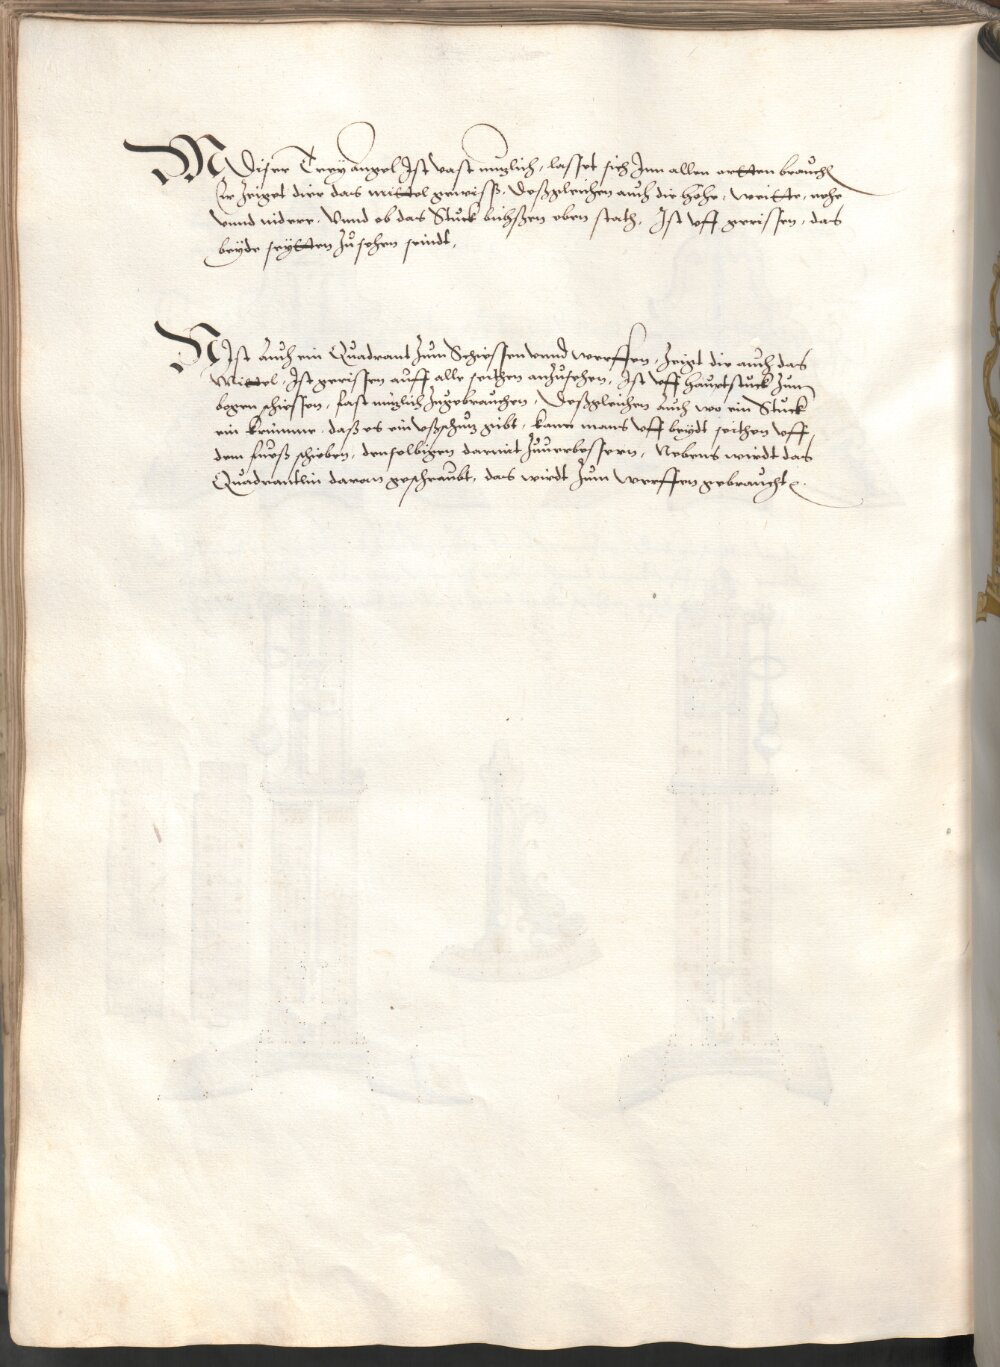 M Diser Treyangel Ist vast nutzlich, lasset sich Inn allen ortten brauch
Er Zeiget dier das mittel gewiss, Deßgleichen auch die höhe, weitte, nehe
vnnd nidere, Vnnd ob das Stuck bühßen eben stath, Ist vff gerissen, das
beyde seytten zu sehen seindt,
N Ist auch ein Quadrant Zum Schiessen vnnd werffen, Zeigt dir auch das
Mittel, Ist gerissen auff alle seithen anzusehen, Ist vff haubtstuck Zum
bogen schiessen, fast nutzlich Zugebrauchen, Deßgleichen auch wo ein Stuck
ein Krümme, daß es ein vßschutz gibt, kann mans vff beydt seithen vff
dem fueß schieben, denselbigen darmit Zuuerbessern, Nebens wirdt das
Quadrantlin daran geschraubt, das wirdt Zum werffen gebraucht